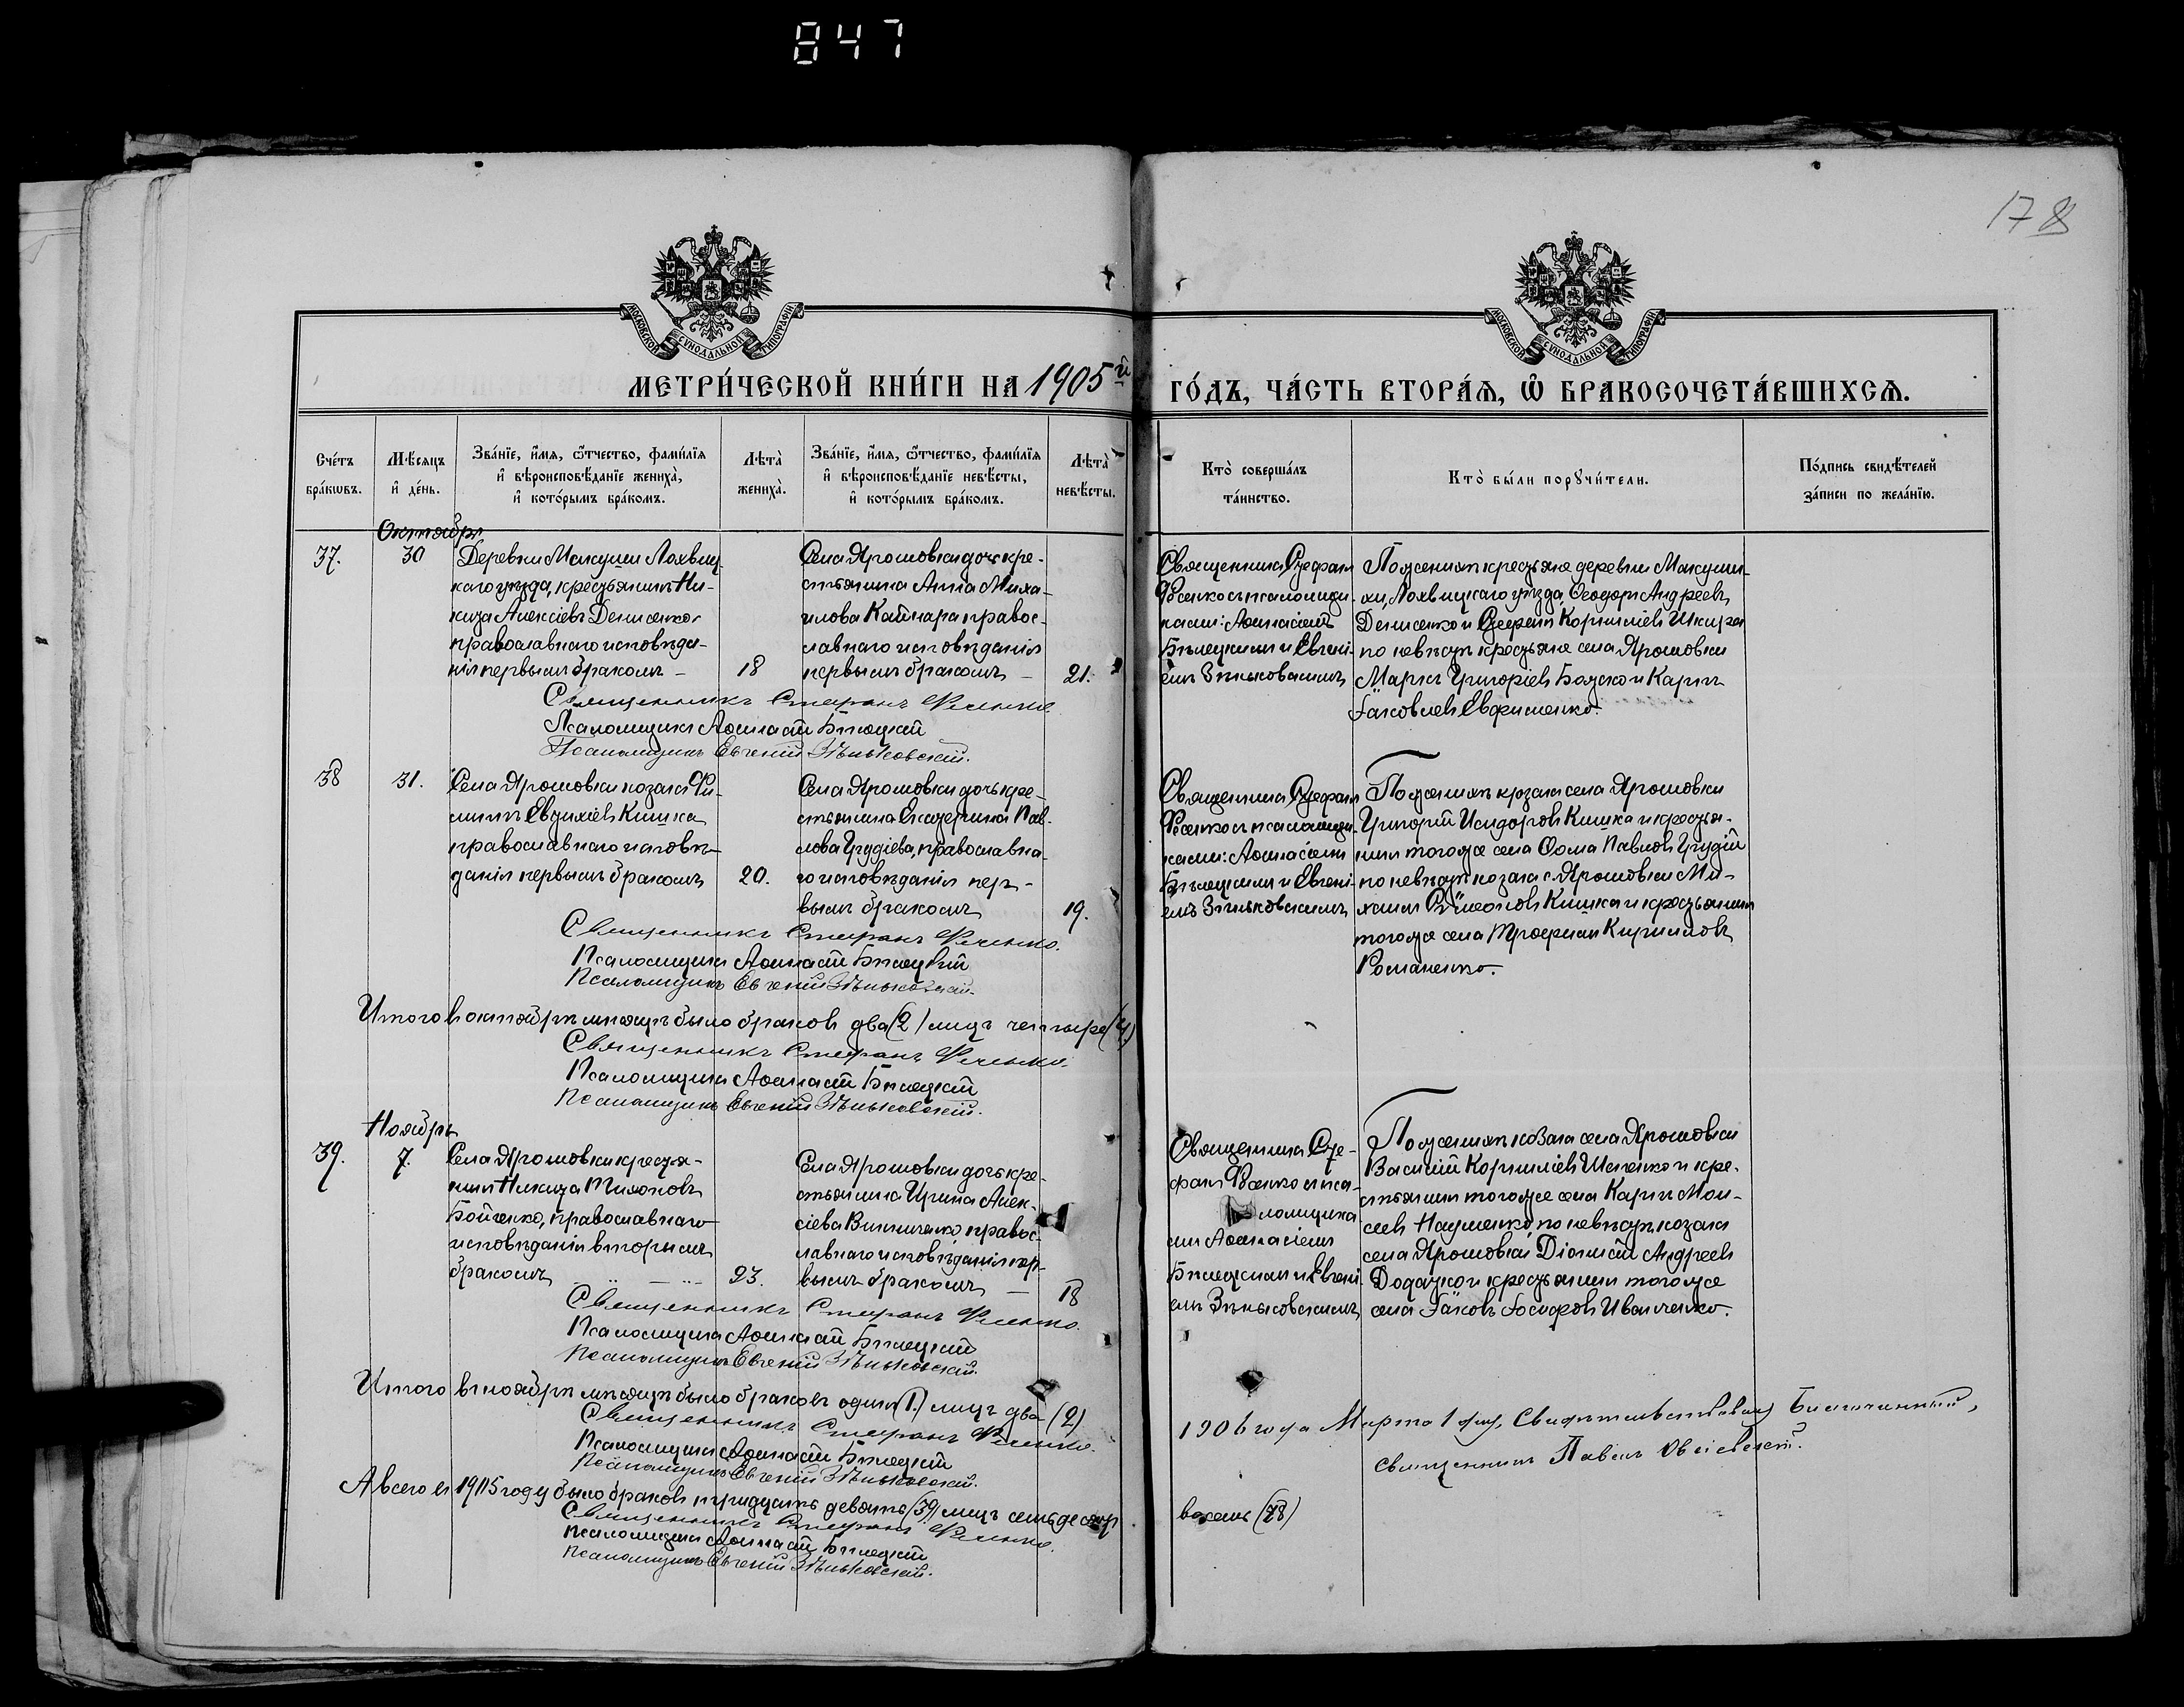 847
178
МОСКОВСКОЙ СУНОДАЛЬНОЙ ТИПОГРАФІИ
МОСКОВСКОЙ СУНОДАЛЬНОЙ ТИПОГРАФІИ
МЕТРИ́ЧЕСКОЙ КНИ́ГИ НА 1905й
ГО́ДЪ, ЧА́СТЬ ВТОРА́Я, Ѽ БРАКОСОЧЕТА́ВШИХСѦ.
Счётъ бра́кωвъ.
Мѣ́сяцъ и҆ де́нь.
Зва́нїе, и҆́мя, ѻ҆́тчество, фами́лїя и҆ вѣроисповѣ́данїе жениха̀, и҆ кото́рымъ бра́комъ.
Лѣта̀ жениха̀.
Зва́нїе, и҆́мя, ѻ҆́тчество, фами́лїя и҆ вѣроисповѣ́данїе невѣ́сты, и҆ кото́рымъ бра́комъ.
Лѣта̀ невѣ́сты.
Кто̀ соверша́лъ та́инство.
Кто̀ бы́ли порꙋчи́тели.
По́дпись свидѣ́телей за́писи по жела́нїю.
Октябрь
37.
30
Деревни Макушихи Лохвиц-
каго уѣзда, крестьянинъ Ни-
кита Алексіевъ Денисенко
православнаго исповѣда-
нія первымъ бракомъ –
18
Села Ярошовки дочь кре-
стьянина Анна Миха-
илова Кайнара правос-
лавнаго исповѣданія
первымъ бракомъ –
21.
Священникъ Стефанъ
съ псаломщи-
ками: Аѳанасіемъ
Бѣлецкимъ и Евгені-
емъ Зѣньковскимъ
По женихѣ крестьяне деревни Макуши-
хи, Лохвицкаго уѣзда, Ѳеодоръ Андреевъ
Денисенко и Стефанъ Корниліевъ Шкира
по невѣстѣ крестьяне села Ярошовки
Маркъ Григоріевъ Божко и Карпъ
Іаковлевъ Евфименко.
Священникъ Стефанъ
Псаломщикъ Аѳанасій Бѣлецкій
Псаломщикъ Евгеній Зѣньковскій.
38
31.
Села Ярошовки козакъ Фи-
липпъ Евдихіевъ Кишка
православнаго исповѣ-
данія первымъ бракомъ
20.
Села Ярошовки дочь кре-
стьянина Екатерина Пав-
лова Грудіева, православна-
го исповѣданія пер-
вымъ бракомъ
19.
Священникъ Стефанъ
съ псаломщи-
ками: Аѳанасіемъ
Бѣлецкимъ и Евгені-
емъ Зѣньковскимъ
По женихѣ козакъ села Ярошовки
Григорій Исидоровъ Кишка и крестья-
нинъ того же села Ѳома Павловъ Грудій
по невѣстѣ козакъ с. Ярошовки Ми-
хаилъ Симеоновъ Кишка и крестьянинъ
того же села Трофимъ Кирилловъ
Романенко.
Священникъ Стефанъ
Псаломщикъ Аѳанасій Бѣлецкій
Псаломщикъ Евгеній Зѣньковскій.
Итого въ октябрѣ мѣсяцѣ было браковъ два (2) лицъ четыре (4)
Священникъ Стефанъ
Псаломщикъ Аѳанасій Бѣлецкій
Псаломщикъ Евгеній Зѣньковскій.
Ноябрь
39.
7.
Села Ярошовки крестья-
нинъ Никита Тихоновъ
Бойченко, православнаго
исповѣданія вторымъ
бракомъ
23.
Села Ярошовки дочь кре-
стьянина Ирина Алек-
сіева Винниченко правос-
лавнаго исповѣданія пер-
вымъ бракомъ –
18
Священникъ Сте-
фанъ съ пса-
ломщика
ми Аѳанасіемъ
Бѣлецкимъ и Евгені-
емъ Зѣньковскимъ
По женихѣ козакъ села Ярошовки
Василій Корниліевъ Шепенко и кре-
стьянинъ того же села Карпъ Мои-
сеевъ Науменко, по невѣстѣ козакъ
села Ярошовки, Діонисій Андреевъ
Додатко и крестьянинъ того же
села Іаковъ Іосифовъ Иванченко.
Священникъ Стефанъ
Псаломщикъ Аѳанасій Бѣлецкій
Псаломщикъ Евгеній Зѣньковскій.
Итого въ ноябрѣ мѣсяцѣ было браковъ одинъ (1.) лицъ два (2)
Священникъ Стефанъ
Псаломщикъ Аѳанасій Бѣлецкій
Псаломщикъ Евгеній Зѣньковскій.
1906 года Марта 1 дня, Свидѣтельствовалъ Благочинный,
священникъ Павелъ
А всего въ 1905 году было браковъ тридцать девять (39) лицъ семьдесятъ восемь (78)
Священникъ Стефанъ
Псаломщикъ Аѳанасій Бѣлецкій
Псаломщикъ Евгеній Зѣньковскій.